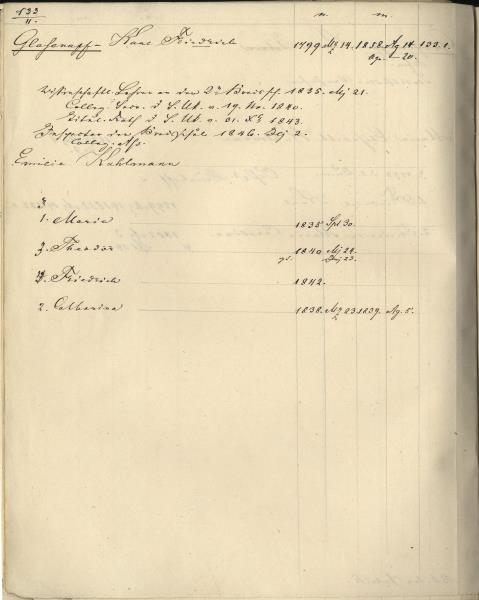 533
II.
n. m.
Glasenapp - Karl Friedrich 1799 Mz 14. 1858 Ag 14 133.1.
Ag. — 20.
Wissenschaftl. Lehrer an der 2 Kreissch. 1835. Mj 21.
Colleg. Secr. d. S. Ut. v. 19. No. 1840.
Titul. Rath d. S. Ut. v. 31. 1843.
Inspector der Kreisschule 1846. 2.
Colleg. Ass.
Emilie Kuhlmann
1. Marie 1835 Spt 30.
3. Theodor 1840 Mj 24.
23.
4. Friedrich 1842.
2. Catharina 1838. Mz 23. 1839. Ag. 5.